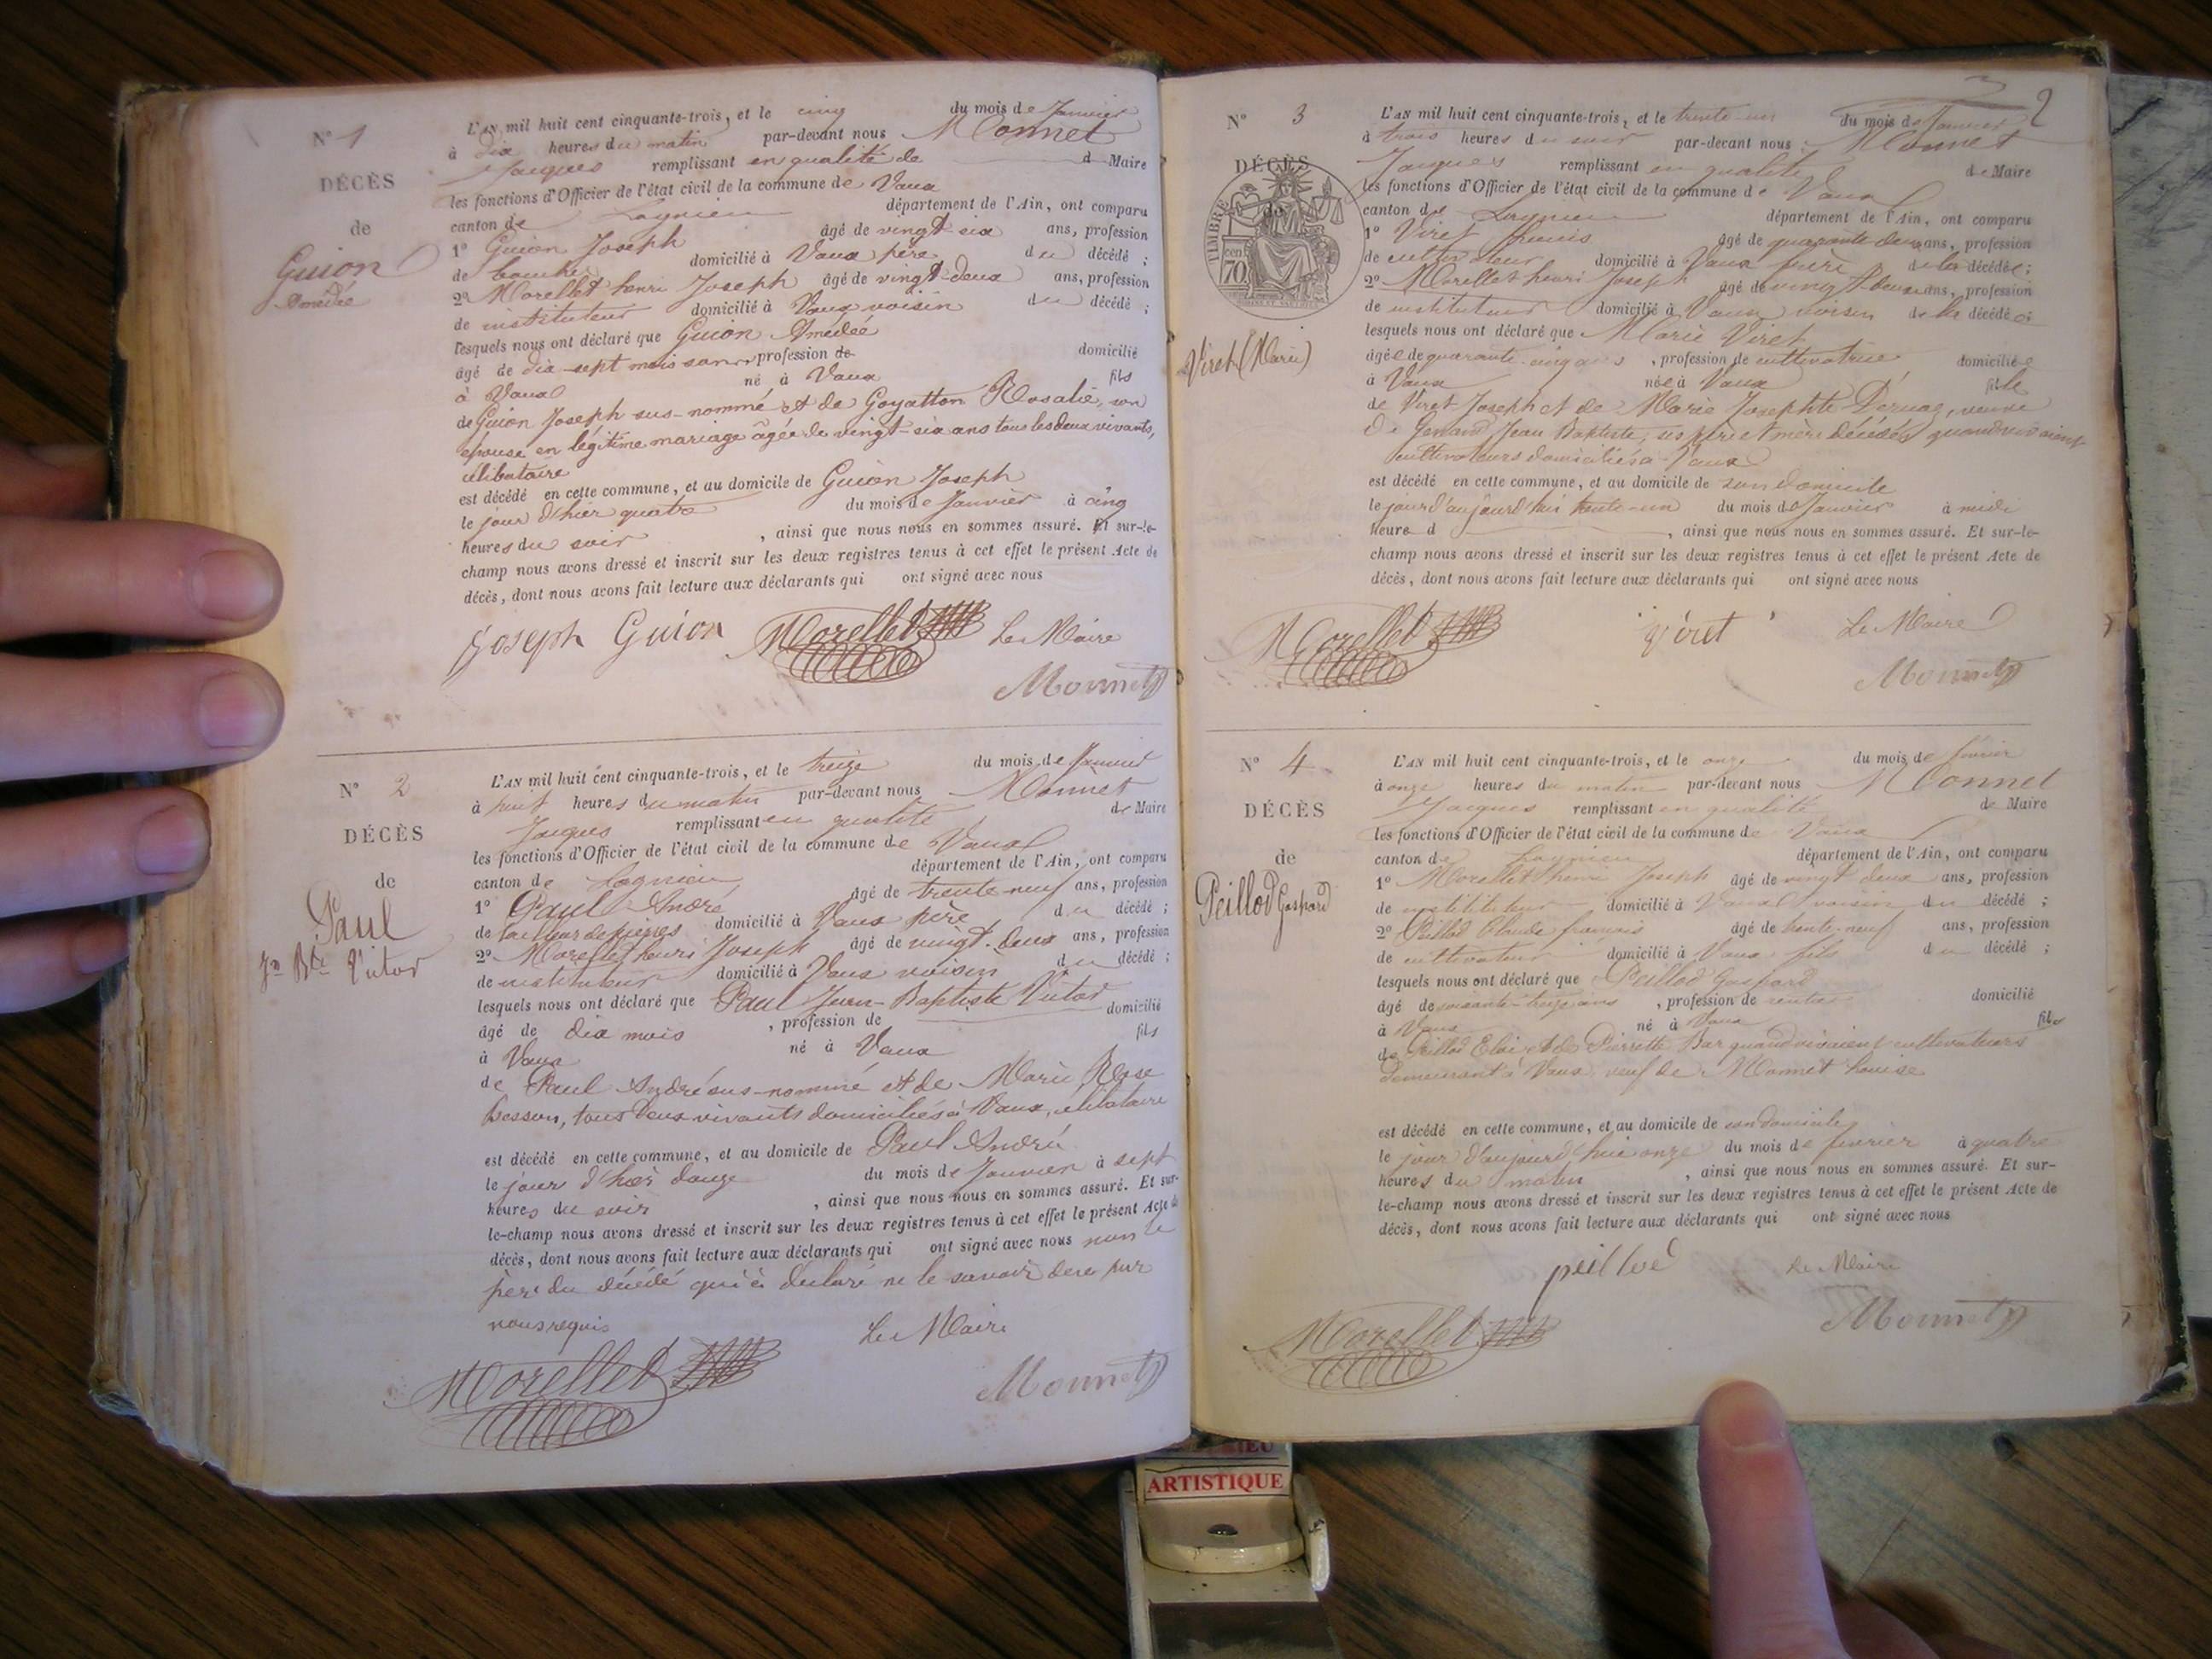 N° 1
DÉCÈS
de
Guion
Amédée
L'AN mil huit cent cinquante-trois, et le cinq du mois de Janvier
à dix heures du matin par-devant nous Monnet
Jacques remplissant en qualité de d Maire
les fonctions d'Officier de l'état civil de la commune de Vaux
canton de Lagnieu département de l'Ain, ont comparu
1° Guion Joseph âgé de vingt-six ans, profession
de domicilié à Vaux père du décédé ;
2° Morellet henri Joseph âgé de vingt-deux ans, profession
de instituteur domicilié à Vaux voisin du décédé ;
lesquels nous ont déclaré que Guion Amédée
âgé de dix-sept mois sans profession de domicilié
à Vaux né à Vaux fils
de Guion Joseph sus-nommé et de Goyatton Rosalie, son
épouse en légitime mariage âgée de vingt-six ans tous les deux vivants,
célibataire
est décédé en cette commune, et au domicile de Guion Joseph
le jour d'hier quatre du mois de Janvier à cinq
heures du soir , ainsi que nous nous en sommes assuré. Et sur-le-
champ nous avons dressé et inscrit sur les deux registres tenus à cet effet le présent Acte de
décès, dont nous avons fait lecture aux déclarants qui ont signé avec nous
Joseph Guion Morellet Le Maire
Monnet
N° 2
DÉCÈS
de
Paul
Jn Bte Victor
L'AN mil huit cent cinquante-trois, et le treize du mois de Janvier
à huit heures du matin par-devant nous Monnet
Jacques remplissant en qualité de Maire
les fonctions d'Officier de l'état civil de la commune de Vaux
canton de Lagnieu département de l'Ain, ont comparu
1° Paul André âgé de trente-neuf ans, profession
de tailleur de pierres domicilié à Vaux père du décédé ;
2° Morellet henri Joseph âgé de vingt-deux ans, profession
de instituteur domicilié à Vaux voisin du décédé ;
lesquels nous ont déclaré que Paul Jean-Baptiste Victor
âgé de dix mois , profession de domicilié
à Vaux né à Vaux fils
de Paul André sus-nommé et de Marie Rose
Besson, tous deux vivants domiciliés à Vaux, célibataire
est décédé en cette commune, et au domicile de Paul André
le jour d'hier douze du mois de Janvier à sept
heures du soir , ainsi que nous nous en sommes assuré. Et sur-
le-champ nous avons dressé et inscrit sur les deux registres tenus à cet effet le présent Acte de
décès, dont nous avons fait lecture aux déclarants qui ont signé avec nous non le
père du décédé qui a déclaré ne le savoir de ce par
nous requis
Le Maire
Morellet Monnet
2
N° 3
DÉCÈS
de
TIMBRE
70 cen
Viret (Marie)
L'AN mil huit cent cinquante-trois, et le trente-un du mois de Janvier
à trois heures du soir par-devant nous Monnet
Jacques remplissant en qualité de Maire
les fonctions d'Officier de l'état civil de la commune de Vaux
canton de Lagnieu département de l'Ain, ont comparu
1° Viret âgé de quarante-deux ans, profession
de cultivateur domicilié à Vaux frère de la décédée ;
2° Morellet henri Joseph âgé de vingt-deux ans, profession
de instituteur domicilié à Vaux voisin de la décédée
lesquels nous ont déclaré que Marie Viret
âgée de quarante-cinq ans , profession de cultivatrice domiciliée
à Vaux née à Vaux fille
de Viret Joseph et de Marie Josephte , veuve
de Jean Baptiste, ses père et mère décédés quand vivaient
cultivateurs domiciliés à Vaux
est décédé en cette commune, et au domicile de son domicile
le jour d'aujourd'hui trente-un du mois de Janvier à midi
heure d , ainsi que nous nous en sommes assuré. Et sur-le-
champ nous avons dressé et inscrit sur les deux registres tenus à cet effet le présent Acte de
décès, dont nous avons fait lecture aux déclarants qui ont signé avec nous
Morellet Viret Le Maire
Monnet
N° 4
DÉCÈS
de
Peillod Gaspard
L'AN mil huit cent cinquante-trois, et le onze du mois de février
à onze heures du matin par-devant nous Monnet
Jacques remplissant en qualité de Maire
les fonctions d'Officier de l'état civil de la commune de Vaux
canton de Lagnieu département de l'Ain, ont comparu
1° Morellet henri Joseph âgé de vingt-deux ans, profession
de instituteur domicilié à Vaux voisin du décédé ;
2° Peillod Claude françois âgé de trente-neuf ans, profession
de cultivateur domicilié à Vaux fils du décédé ;
lesquels nous ont déclaré que Peillod Gaspard
âgé de ans , profession de rentier domicilié
à Vaux né à Vaux fils
de Peillod Eloi et de Pierrette Bar quand vivaient cultivateurs
demeurant à Vaux, veuf de Monnet Louise
est décédé en cette commune, et au domicile de son domicile
le jour d'aujourd'hui onze du mois de février à quatre
heures du matin , ainsi que nous nous en sommes assuré. Et sur-
le-champ nous avons dressé et inscrit sur les deux registres tenus à cet effet le présent Acte de
décès, dont nous avons fait lecture aux déclarants qui ont signé avec nous
peillod Le Maire
Morellet Monnet
ARTISTIQUE